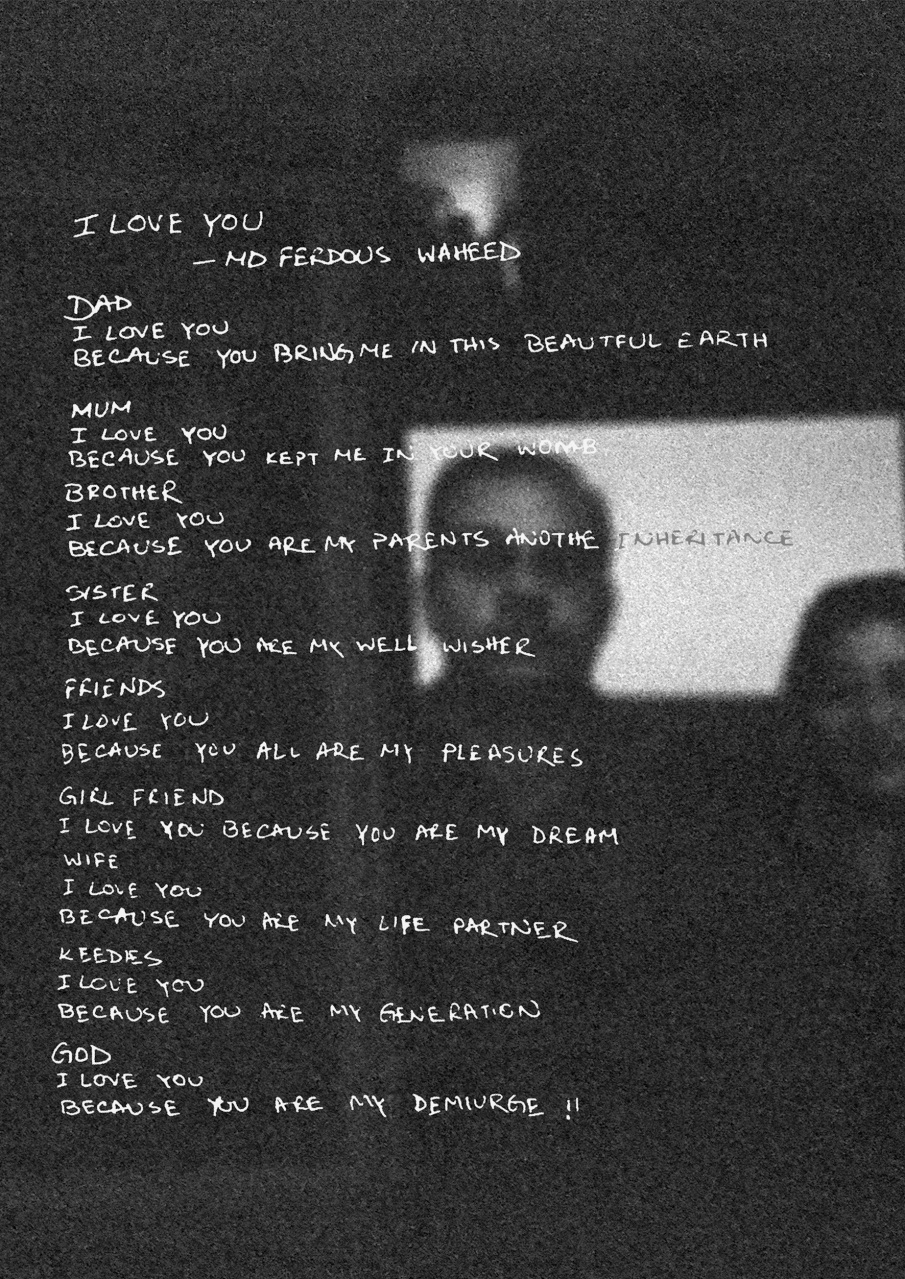 I LOVE YOU
— MD FERDOUS WAHEED
DAD
I LOVE YOU
BECAUSE YOU BRING ME IN THIS BEAUTFUL EARTH
MUM
I LOVE YOU
BECAUSE YOU KEPT ME IN YOUR WOMB
BROTHER
I LOVE YOU
BECAUSE YOU ARE MY PARENTS ANOTHE INHERITANCE
SISTER
I LOVE YOU
BECAUSE YOU ARE MY WELL WISHER
FRIENDS
I LOVE YOU
BECAUSE YOU ALL ARE MY PLEASURES
GIRL FRIEND
I LOVE YOU BECAUSE YOU ARE MY DREAM
WIFE
I LOVE YOU
BECAUSE YOU ARE MY LIFE PARTNER
KEEDIES
I LOVE YOU
BECAUSE YOU ARE MY GENERATION
GOD
I LOVE YOU
BECAUSE YOU ARE MY DEMIURGE !!